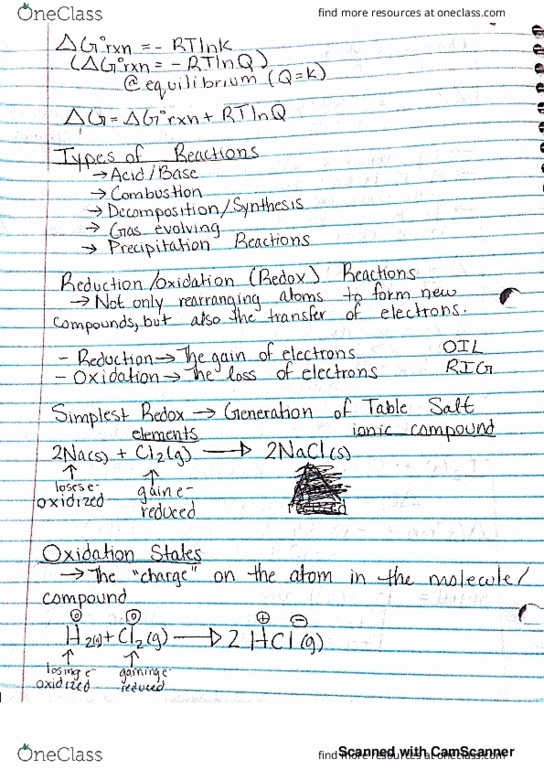 OneClass
find more resources at oneclass.com
ΔG°rxn = - RTlnk
(ΔG°rxn = - RTlnQ)
@ equilibrium (Q=k)
ΔG = ΔG°rxn + RTlnQ
Types of Reactions
→ Acid/Base
→ Combustion
→ Decomposition/Synthesis
→ Gas evolving
→ Precipitation Reactions
Reduction/oxidation (Redox) Reactions
→ Not only rearranging atoms to form new
compounds, but also the transfer of electrons.
- Reduction → The gain of electrons OIL
- Oxidation → The loss of electrons RIG
Simplest Redox → Generation of Table Salt
elements ionic compound
2Na(s) + Cl₂(g) → 2NaCl(s)
↑ ↑
loses e- gain e-
oxidized reduced
Oxidation States
→ The "charge" on the atom in the molecule/
compound
0 0 + -
H₂(g) + Cl₂(g) → 2 HCl(g)
↑ ↑
losing e- gaining e-
oxidized reduced
OneClass
find more resources at oneclass.com
Scanned with CamScanner